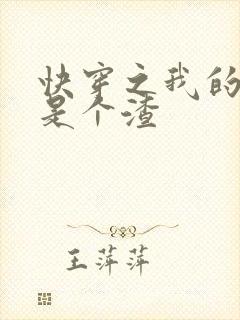 快穿之我的
是个渣
王萍萍